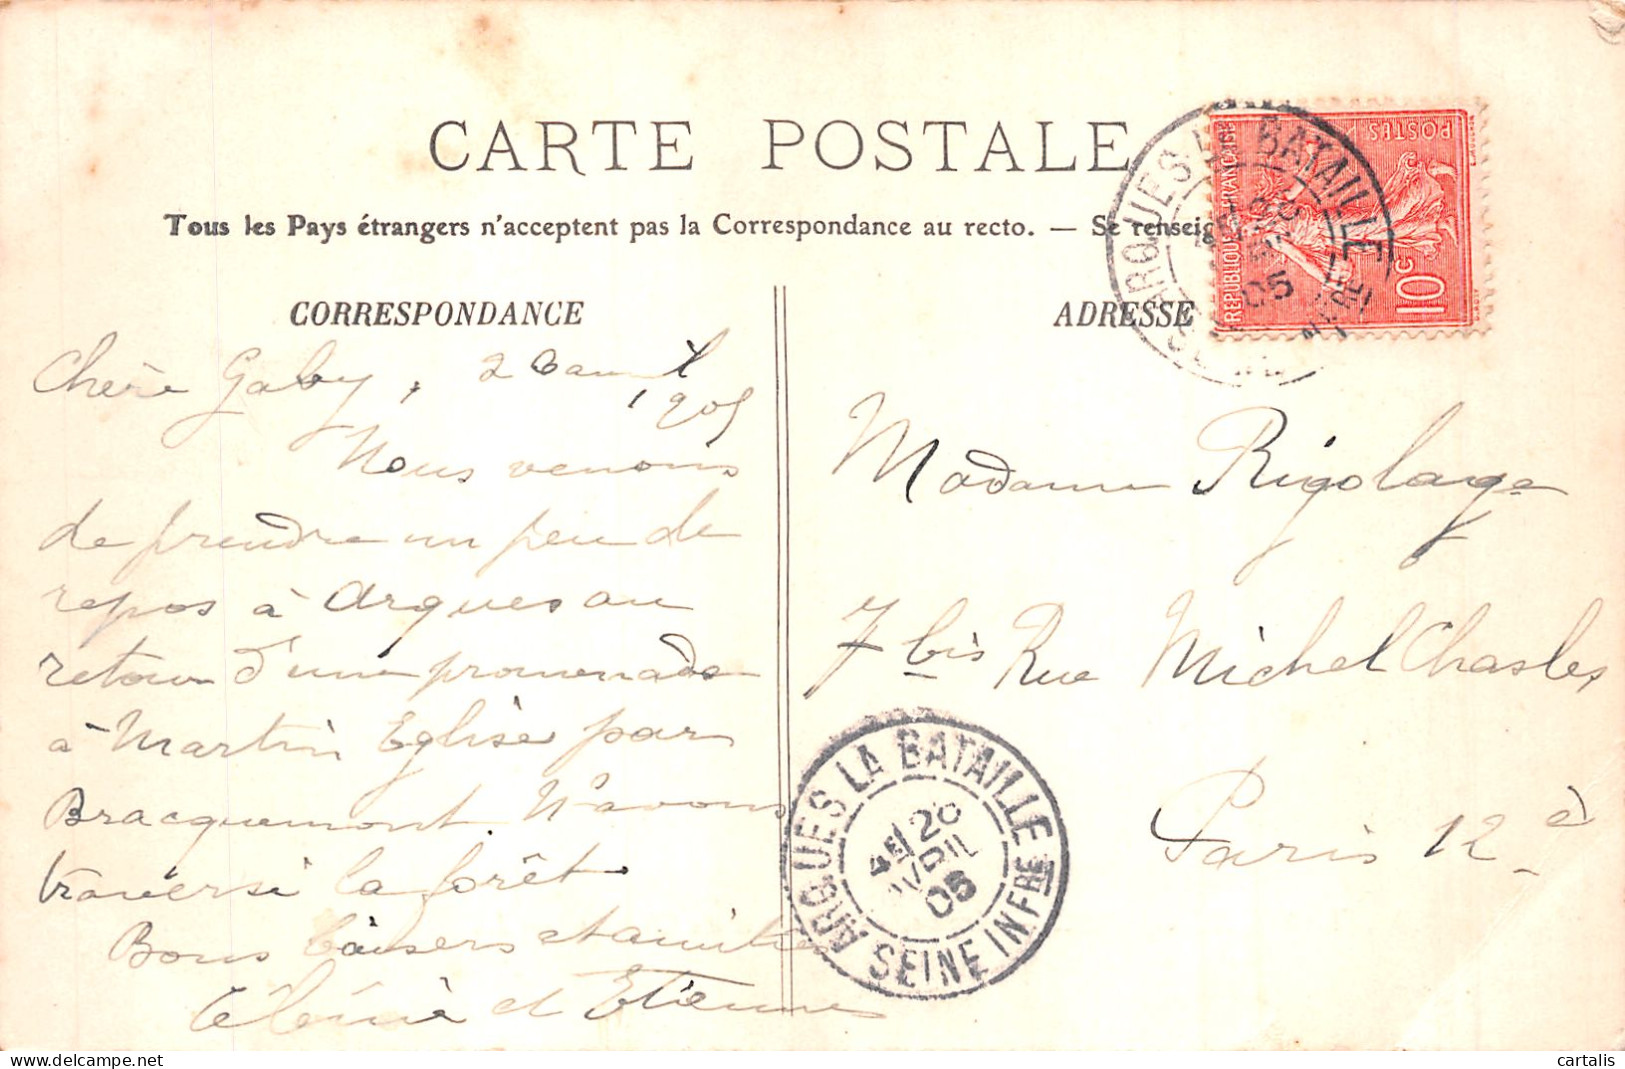 CARTE POSTALE
Tous les Pays étrangers n'acceptent pas la Correspondance au recto. — Se renseig
CORRESPONDANCE
Chère Gaby, 20 avril
1905
Nous venons
de prendre un peu de
repos à Arques au
retour d'une promenade
à Martin Eglise par
Bracquemont. N'avons
traversé la forêt
Bons baisers et amitiés
et Etienne
ADRESSE
Madame Rigolage
7 bis Rue Michel Chasles
Paris 12e
REPUBLIQUE FRANÇAISE
POSTES
10c
ARQUES LA BATAILLE
05
ARQUES LA BATAILLE
4E 20
AVRIL
05
SEINE INFRE
cartalis
delcampe.net